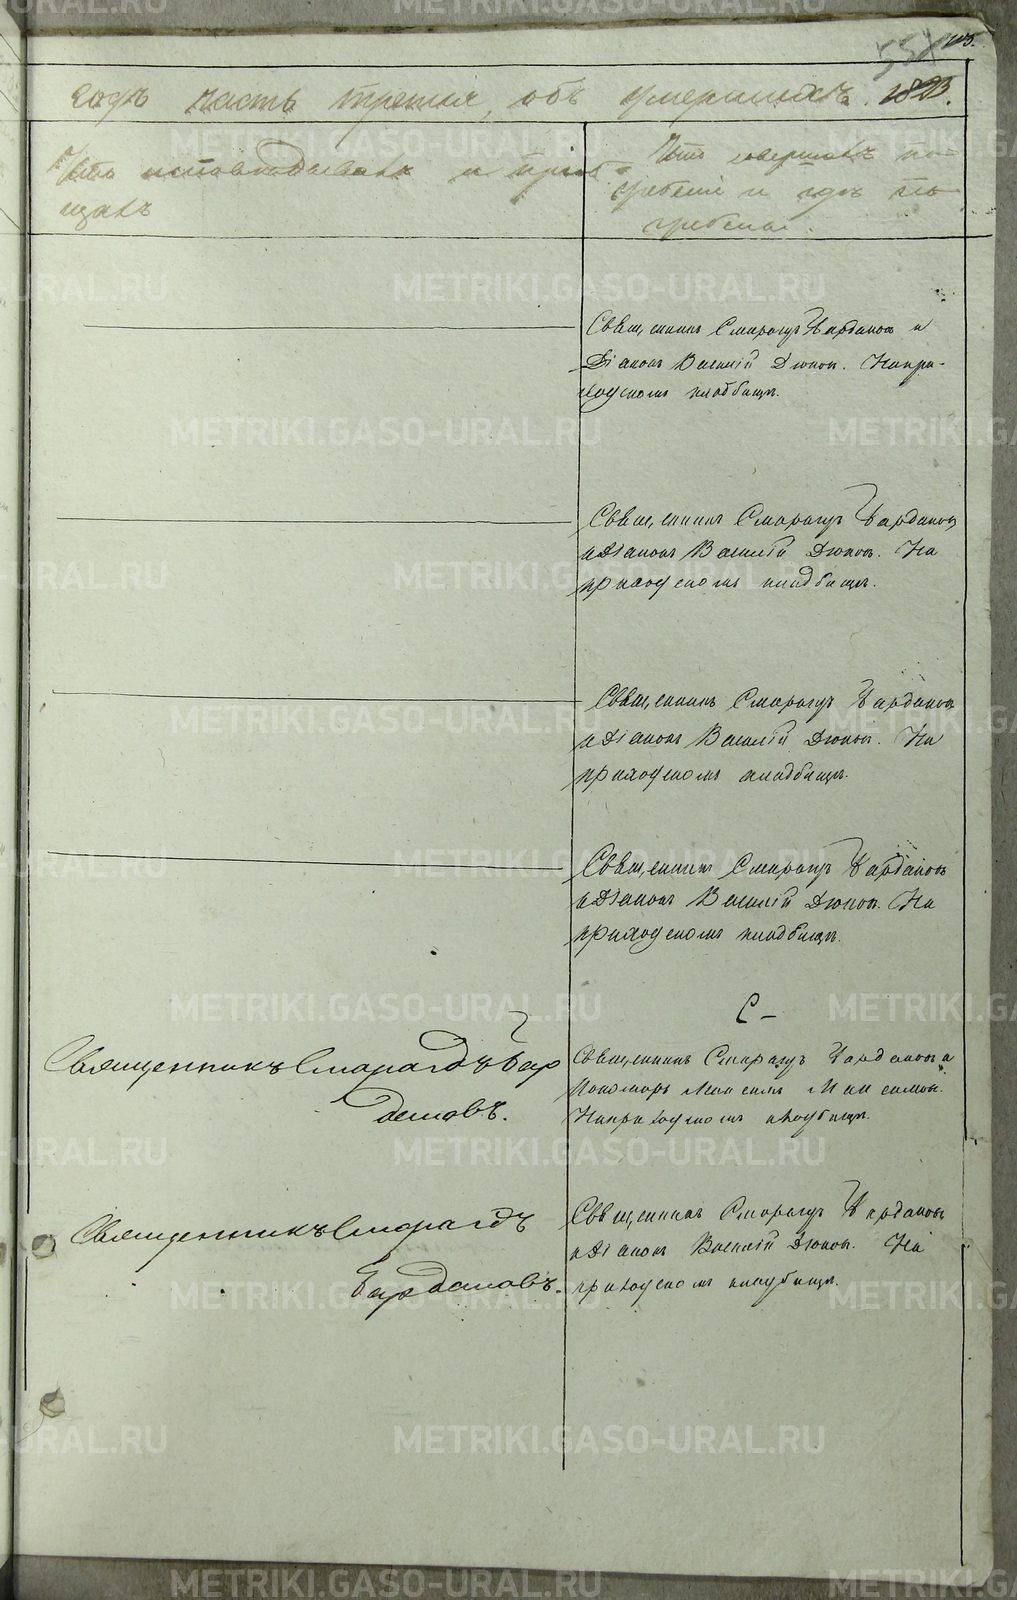 годъ часть третья, объ умершихъ.
Кто исповѣдывалъ и приоб-
щалъ
Кто совершалъ по-
гребеніе и гдѣ по-
гребены.
Священникъ Смарагдъ Бардаковъ и
Діаконъ Василій Дюковъ. На при-
ходскомъ кладбищѣ.
Священникъ Смарагдъ Бардаковъ
и Діаконъ Василій Дюковъ. На
приходскомъ кладбищѣ.
Священникъ Смарагдъ Бардаковъ
и Діаконъ Василій Дюковъ. На
приходскомъ кладбищѣ.
Священникъ Смарагдъ Бардаковъ
и Діаконъ Василій Дюковъ. На
приходскомъ кладбищѣ.
С-
Священникъ Смарагдъ Бар
даковъ.
Священникъ Смарагдъ Бардаковъ и
Пономарь Максимъ
На приходскомъ кладбищѣ.
Священникъ Смарагдъ
Бардаковъ.
Священникъ Смарагдъ Бардаковъ
и Діаконъ Василій Дюковъ. На
приходскомъ кладбищѣ.
METRIKI.GASO-URAL.RU